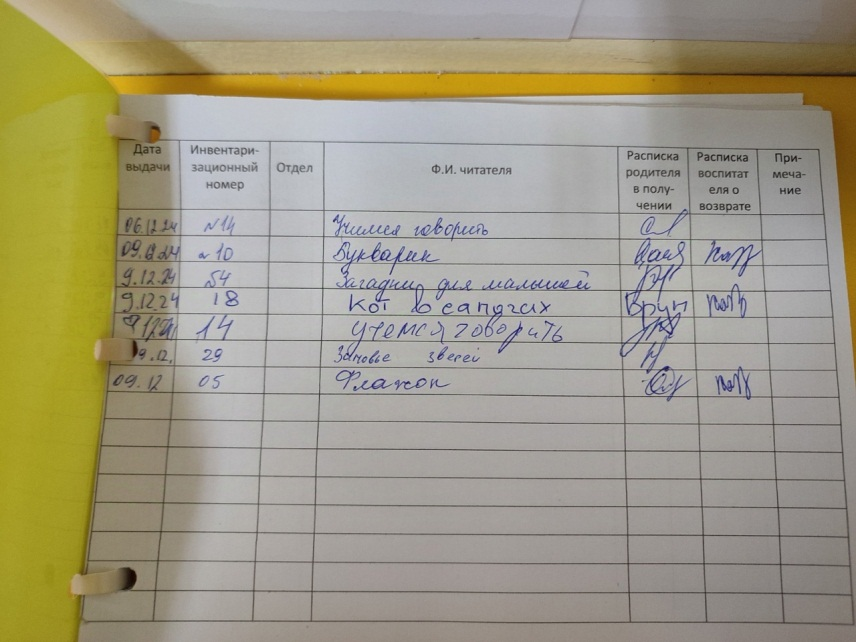 Дата выдачи Инвентари-зационный номер Отдел Ф.И. читателя Расписка родителя в полу-чении Расписка воспитат еля о возврате При-меча-ние
06.12.24 №14 Учимся говорить
09.12.24 №10 Букварик
9.12.24 54 Загадки для малышей
9.12.24 18 Кот в сапогах
9.12.24 14 учемся говорить
9.12. 29 Зимовье зверей
09.12 05 Флажок